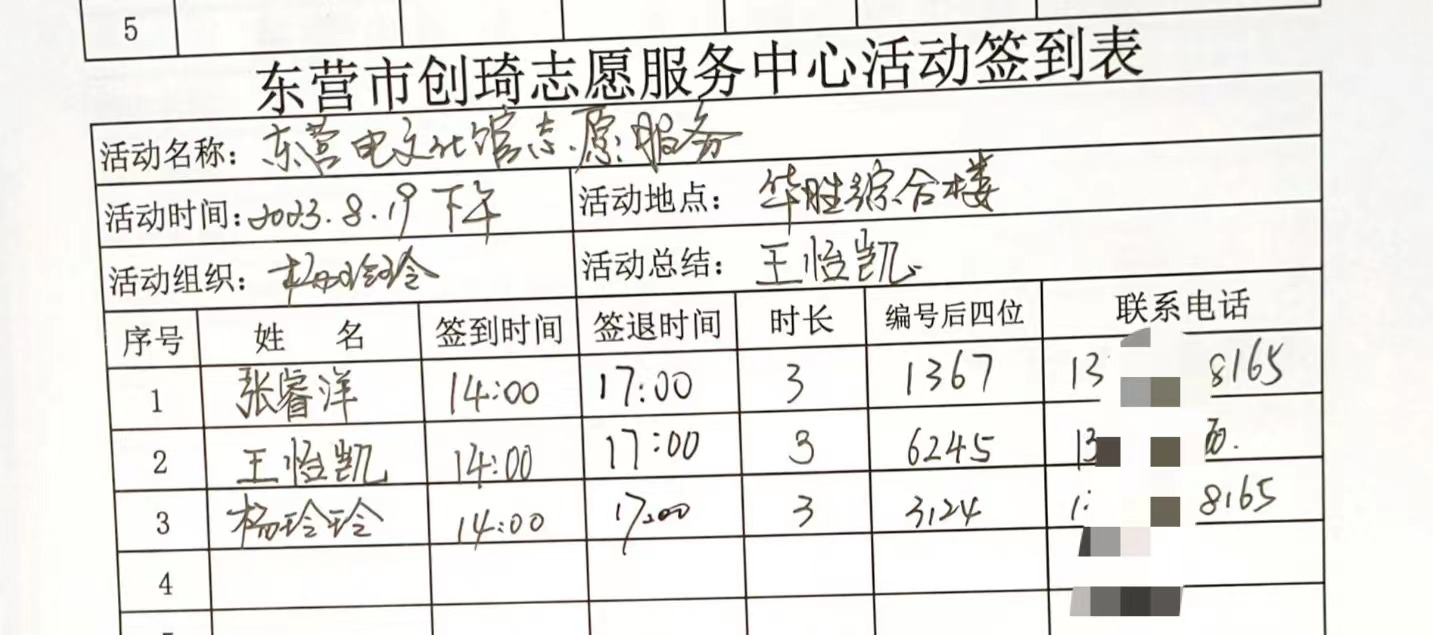 5
东营市创琦志愿服务中心活动签到表
活动名称：东营电文化馆志愿服务
活动时间：2023.8.19下午 活动地点：华胜综合楼
活动组织：杨玲玲 活动总结：王怡凯
序号 姓 名 签到时间 签退时间 时长 编号后四位 联系电话
1 张睿洋 14:00 17:00 3 1367 13 8165
2 王怡凯 14:00 17:00 3 6245 13
3 杨玲玲 14:00 17:00 3 3124 1 8165
4